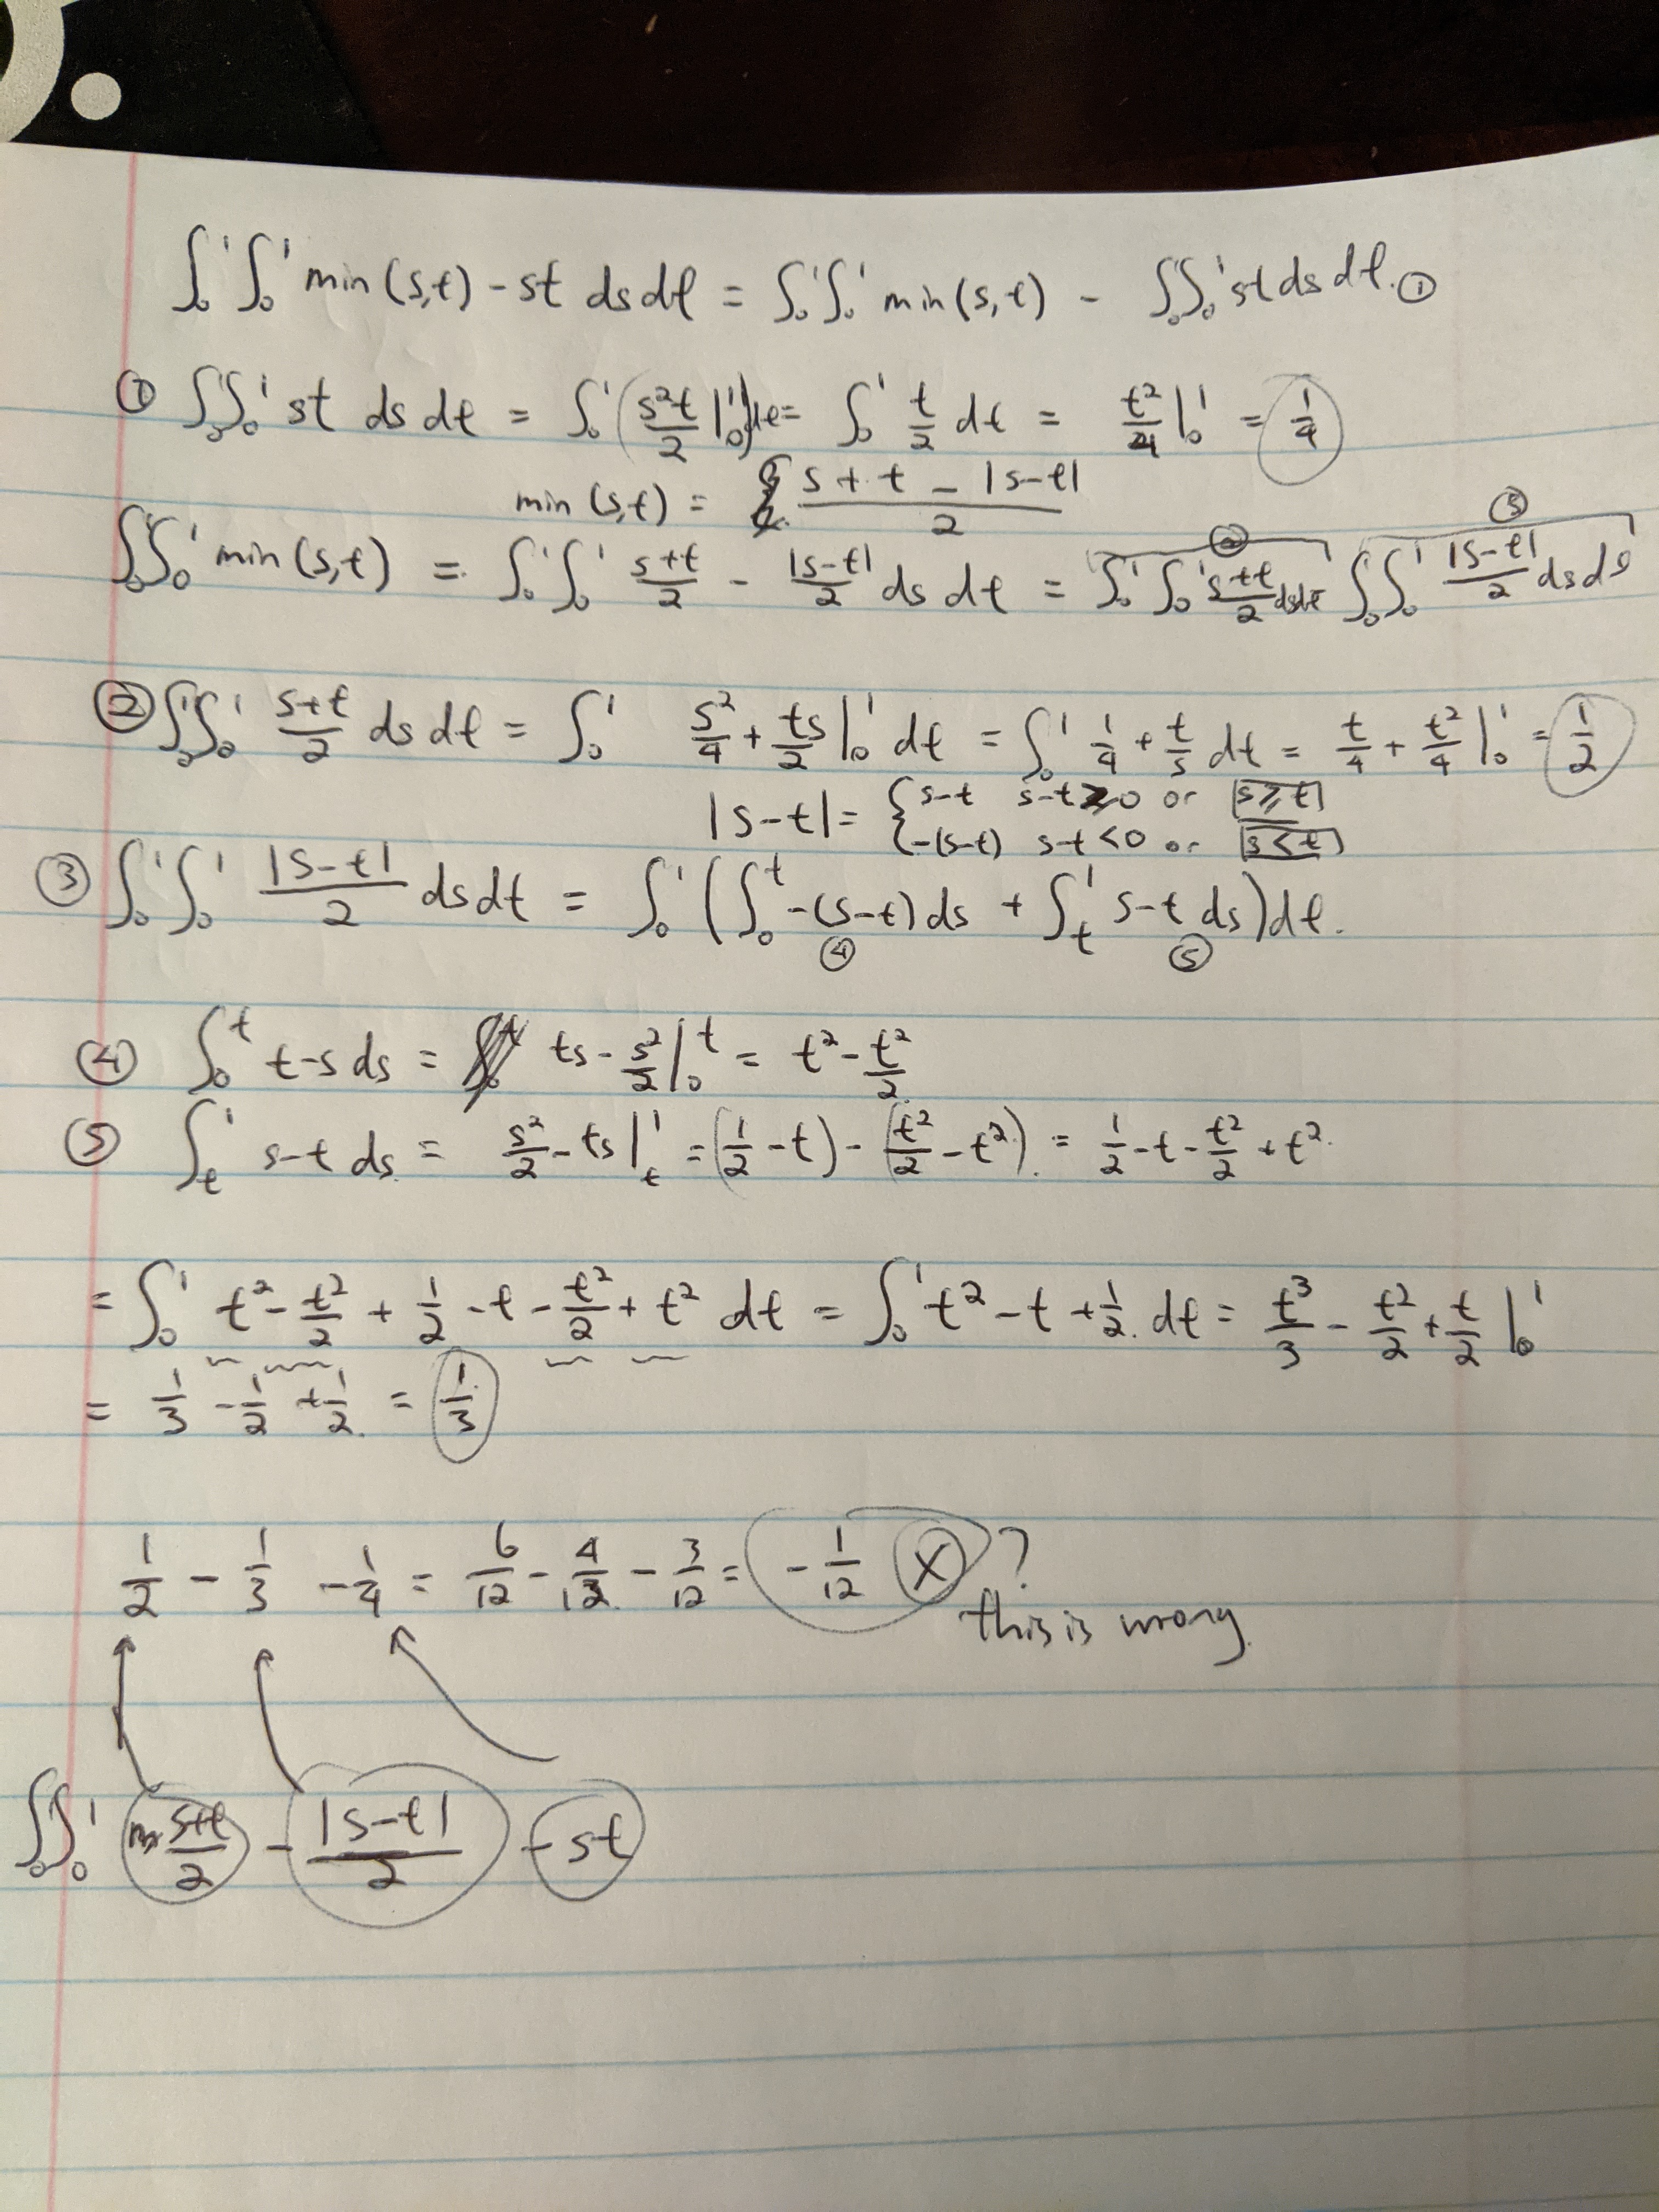 ∫₀¹ ∫₀¹ min(s,t) - st ds dt = ∫₀¹ ∫₀¹ min(s,t) - ∫₀¹ ∫₀¹ st ds dt. ①
① ∫₀¹ ∫₀¹ st ds dt = ∫₀¹ (s²t/2 |₀¹) dt = ∫₀¹ t/2 dt = t²/4 |₀¹ = 1/4
min (s,t) = s + t - |s-t| / 2
∫₀¹ ∫₀¹ min(s,t) = ∫₀¹ ∫₀¹ s+t/2 - |s-t|/2 ds dt = ∫₀¹ ∫₀¹ s+t/2 ds dt ② ∫₀¹ ∫₀¹ |s-t|/2 ds ds ③
② ∫₀¹ ∫₀¹ s+t/2 ds dt = ∫₀¹ s²/4 + ts/2 |₀¹ dt = ∫₀¹ 1/4 + t/s dt = t/4 + t²/4 |₀¹ = 1/2
|s-t| = { s-t s-t ≥ 0 or s ≥ t
-(s-t) s-t < 0 or s < t
③ ∫₀¹ ∫₀¹ |s-t|/2 ds dt = ∫₀¹ ( ∫₀ᵗ -(s-t) ds + ∫ₜ¹ s-t ds ) dt.
④ ⑤
④ ∫₀ᵗ t-s ds = ts - s²/2 |₀ᵗ = t² - t²/2
⑤ ∫ₜ¹ s-t ds = s²/2 - ts |ₜ¹ = (1/2 - t) - (t²/2 - t²) = 1/2 - t - t²/2 + t²
= ∫₀¹ t² - t²/2 + 1/2 - t - t²/2 + t² dt = ∫₀¹ t² - t + 1/2 dt = t³/3 - t²/2 + t/2 |₀¹
= 1/3 - 1/2 + 1/2 = 1/3
1/2 - 1/3 - 1/4 = 6/12 - 4/12 - 3/12 = - 1/12 X ?
this is wrong.
∫₀¹ ∫₀¹ s+t/2 - |s-t|/2 - st